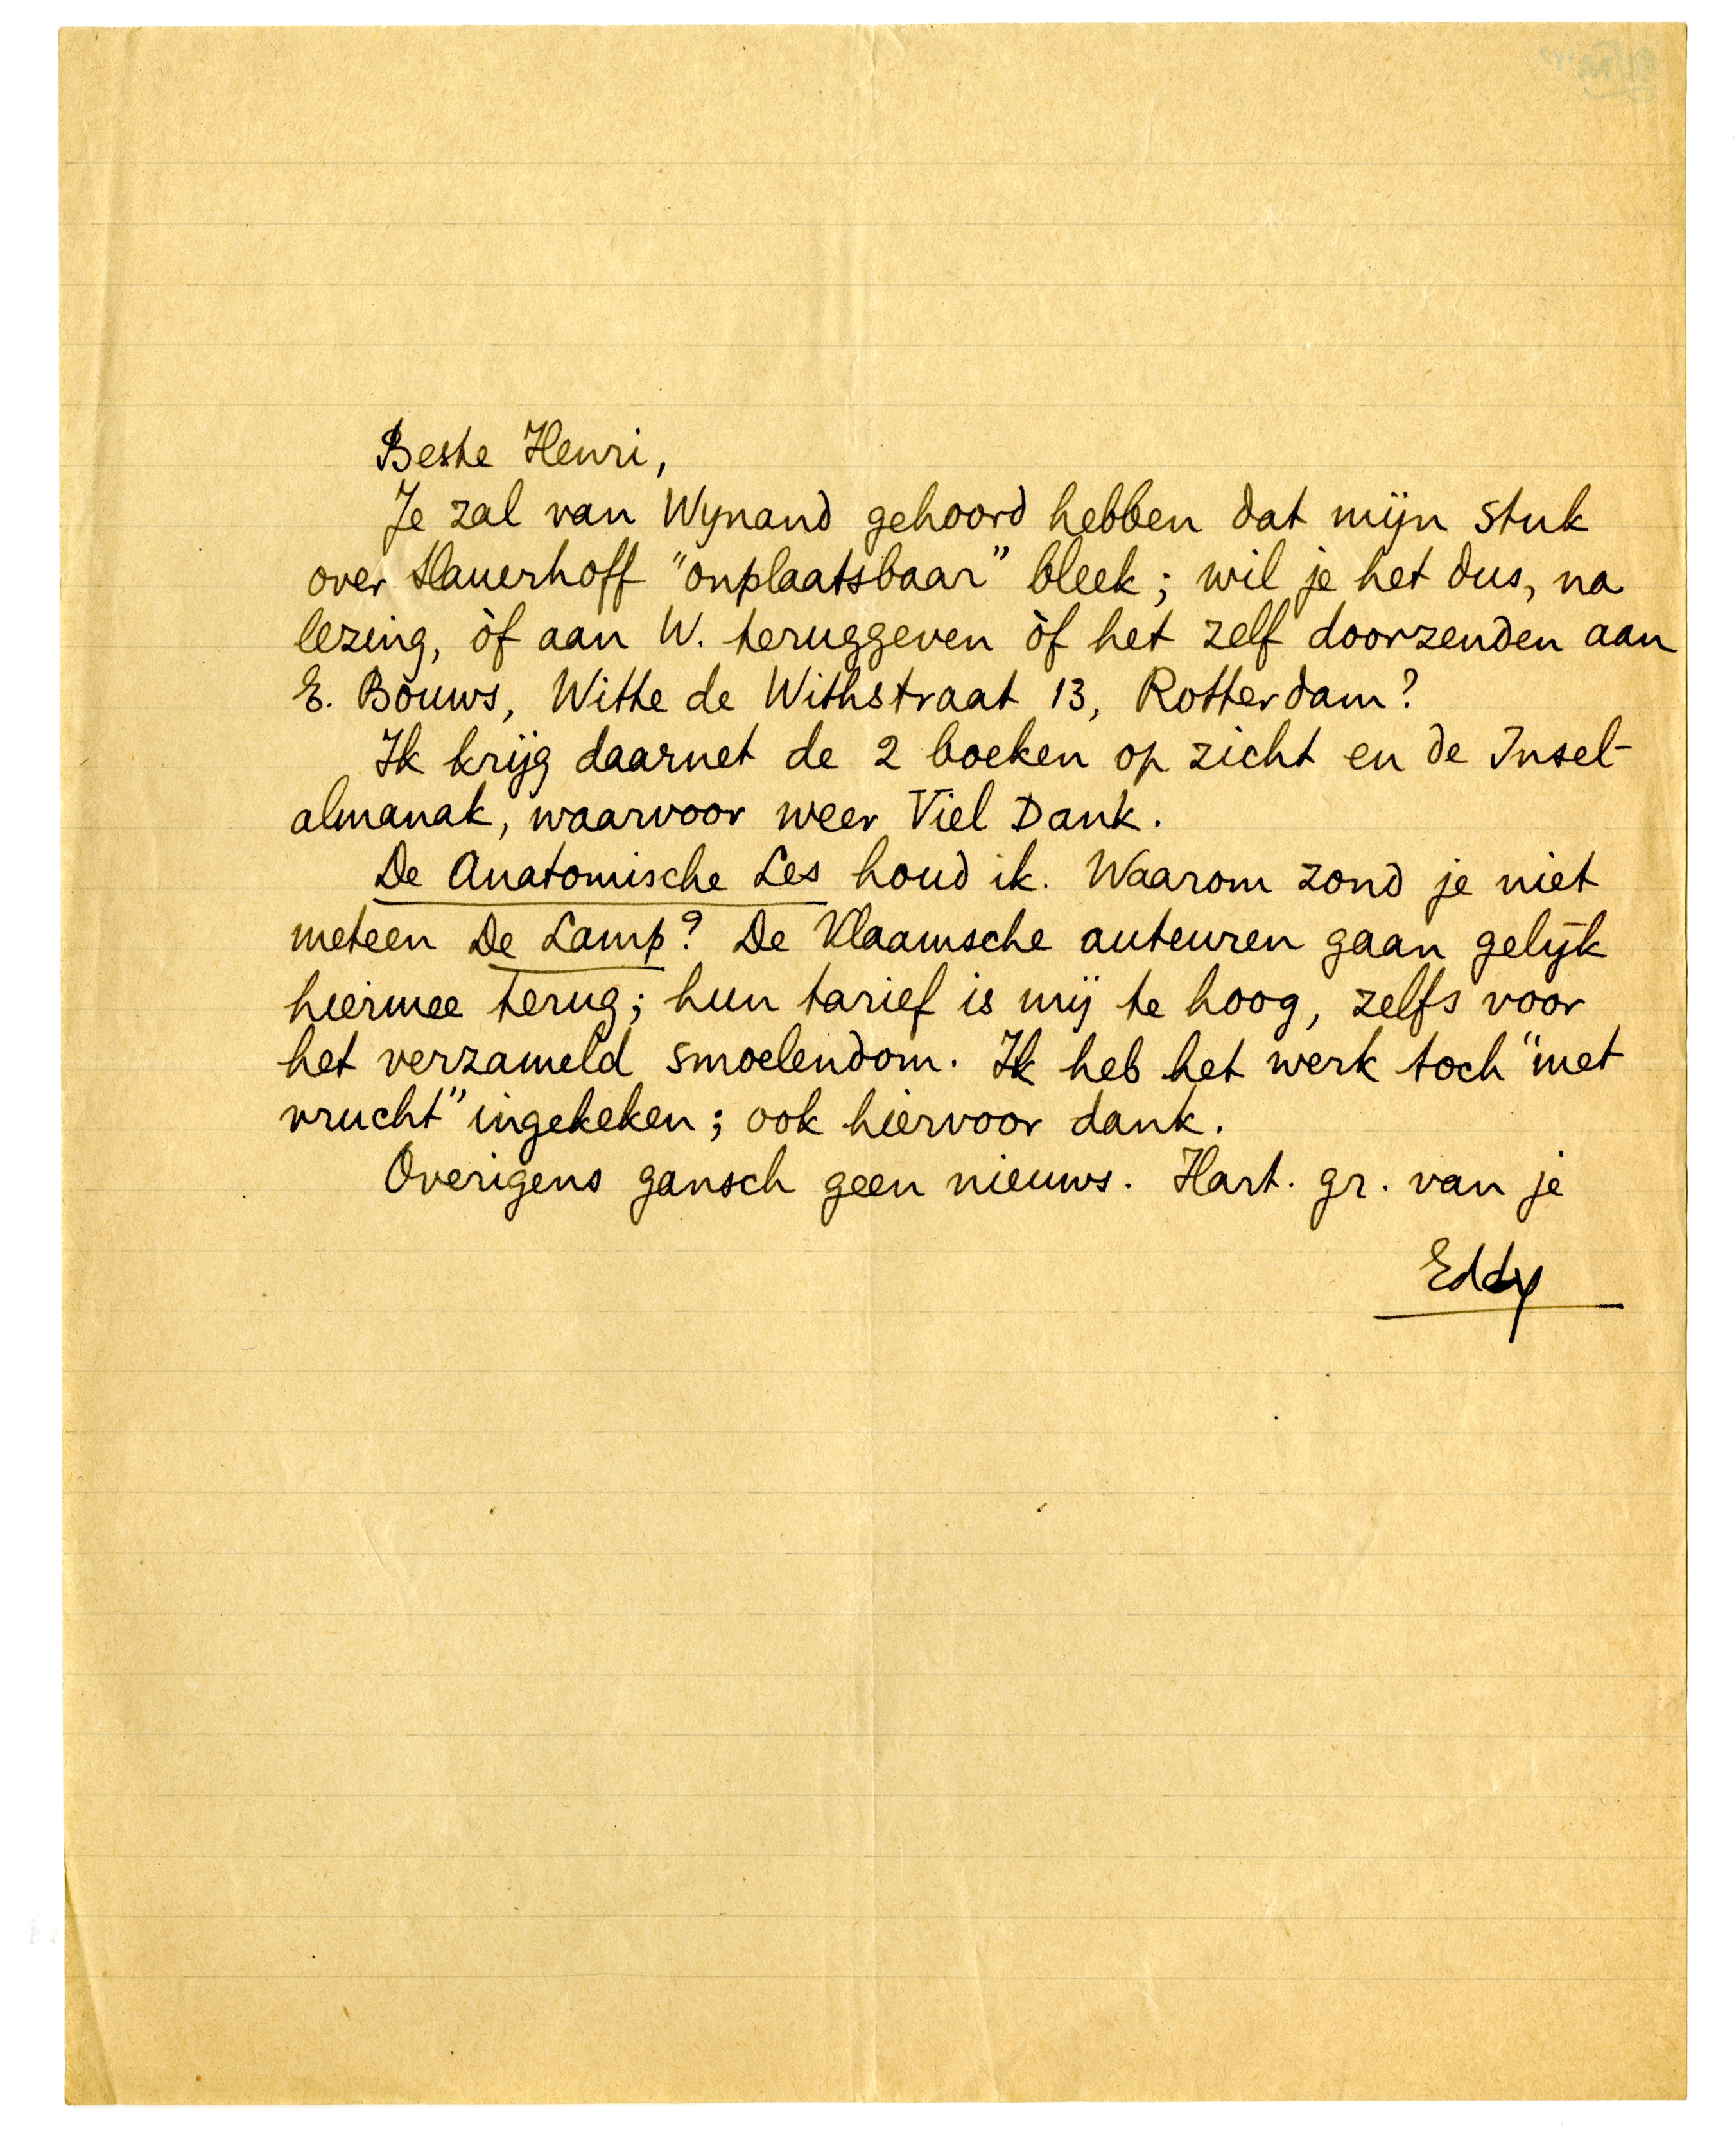 Beste Henri,
Je zal van Wynand gehoord hebben dat mijn stuk
over Slauerhoff "onplaatsbaar" bleek; wil je het dus, na
lezing, òf aan W. teruggeven òf het zelf doorzenden aan
E. Bouws, Witte de Withstraat 13, Rotterdam?
Ik krijg daarnet de 2 boeken op zicht en de Insel-
almanak, waarvoor weer Viel Dank.
De Anatomische Les houd ik. Waarom zond je niet
meteen De Lamp? De Vlaamsche auteuren gaan gelijk
hiermee terug; hun tarief is mij te hoog, zelfs voor
het verzameld smoelendom. Ik heb het werk toch "met
vrucht" ingekeken; ook hiervoor dank.
Overigens gansch geen nieuws. Hart. gr. van je
Eddy